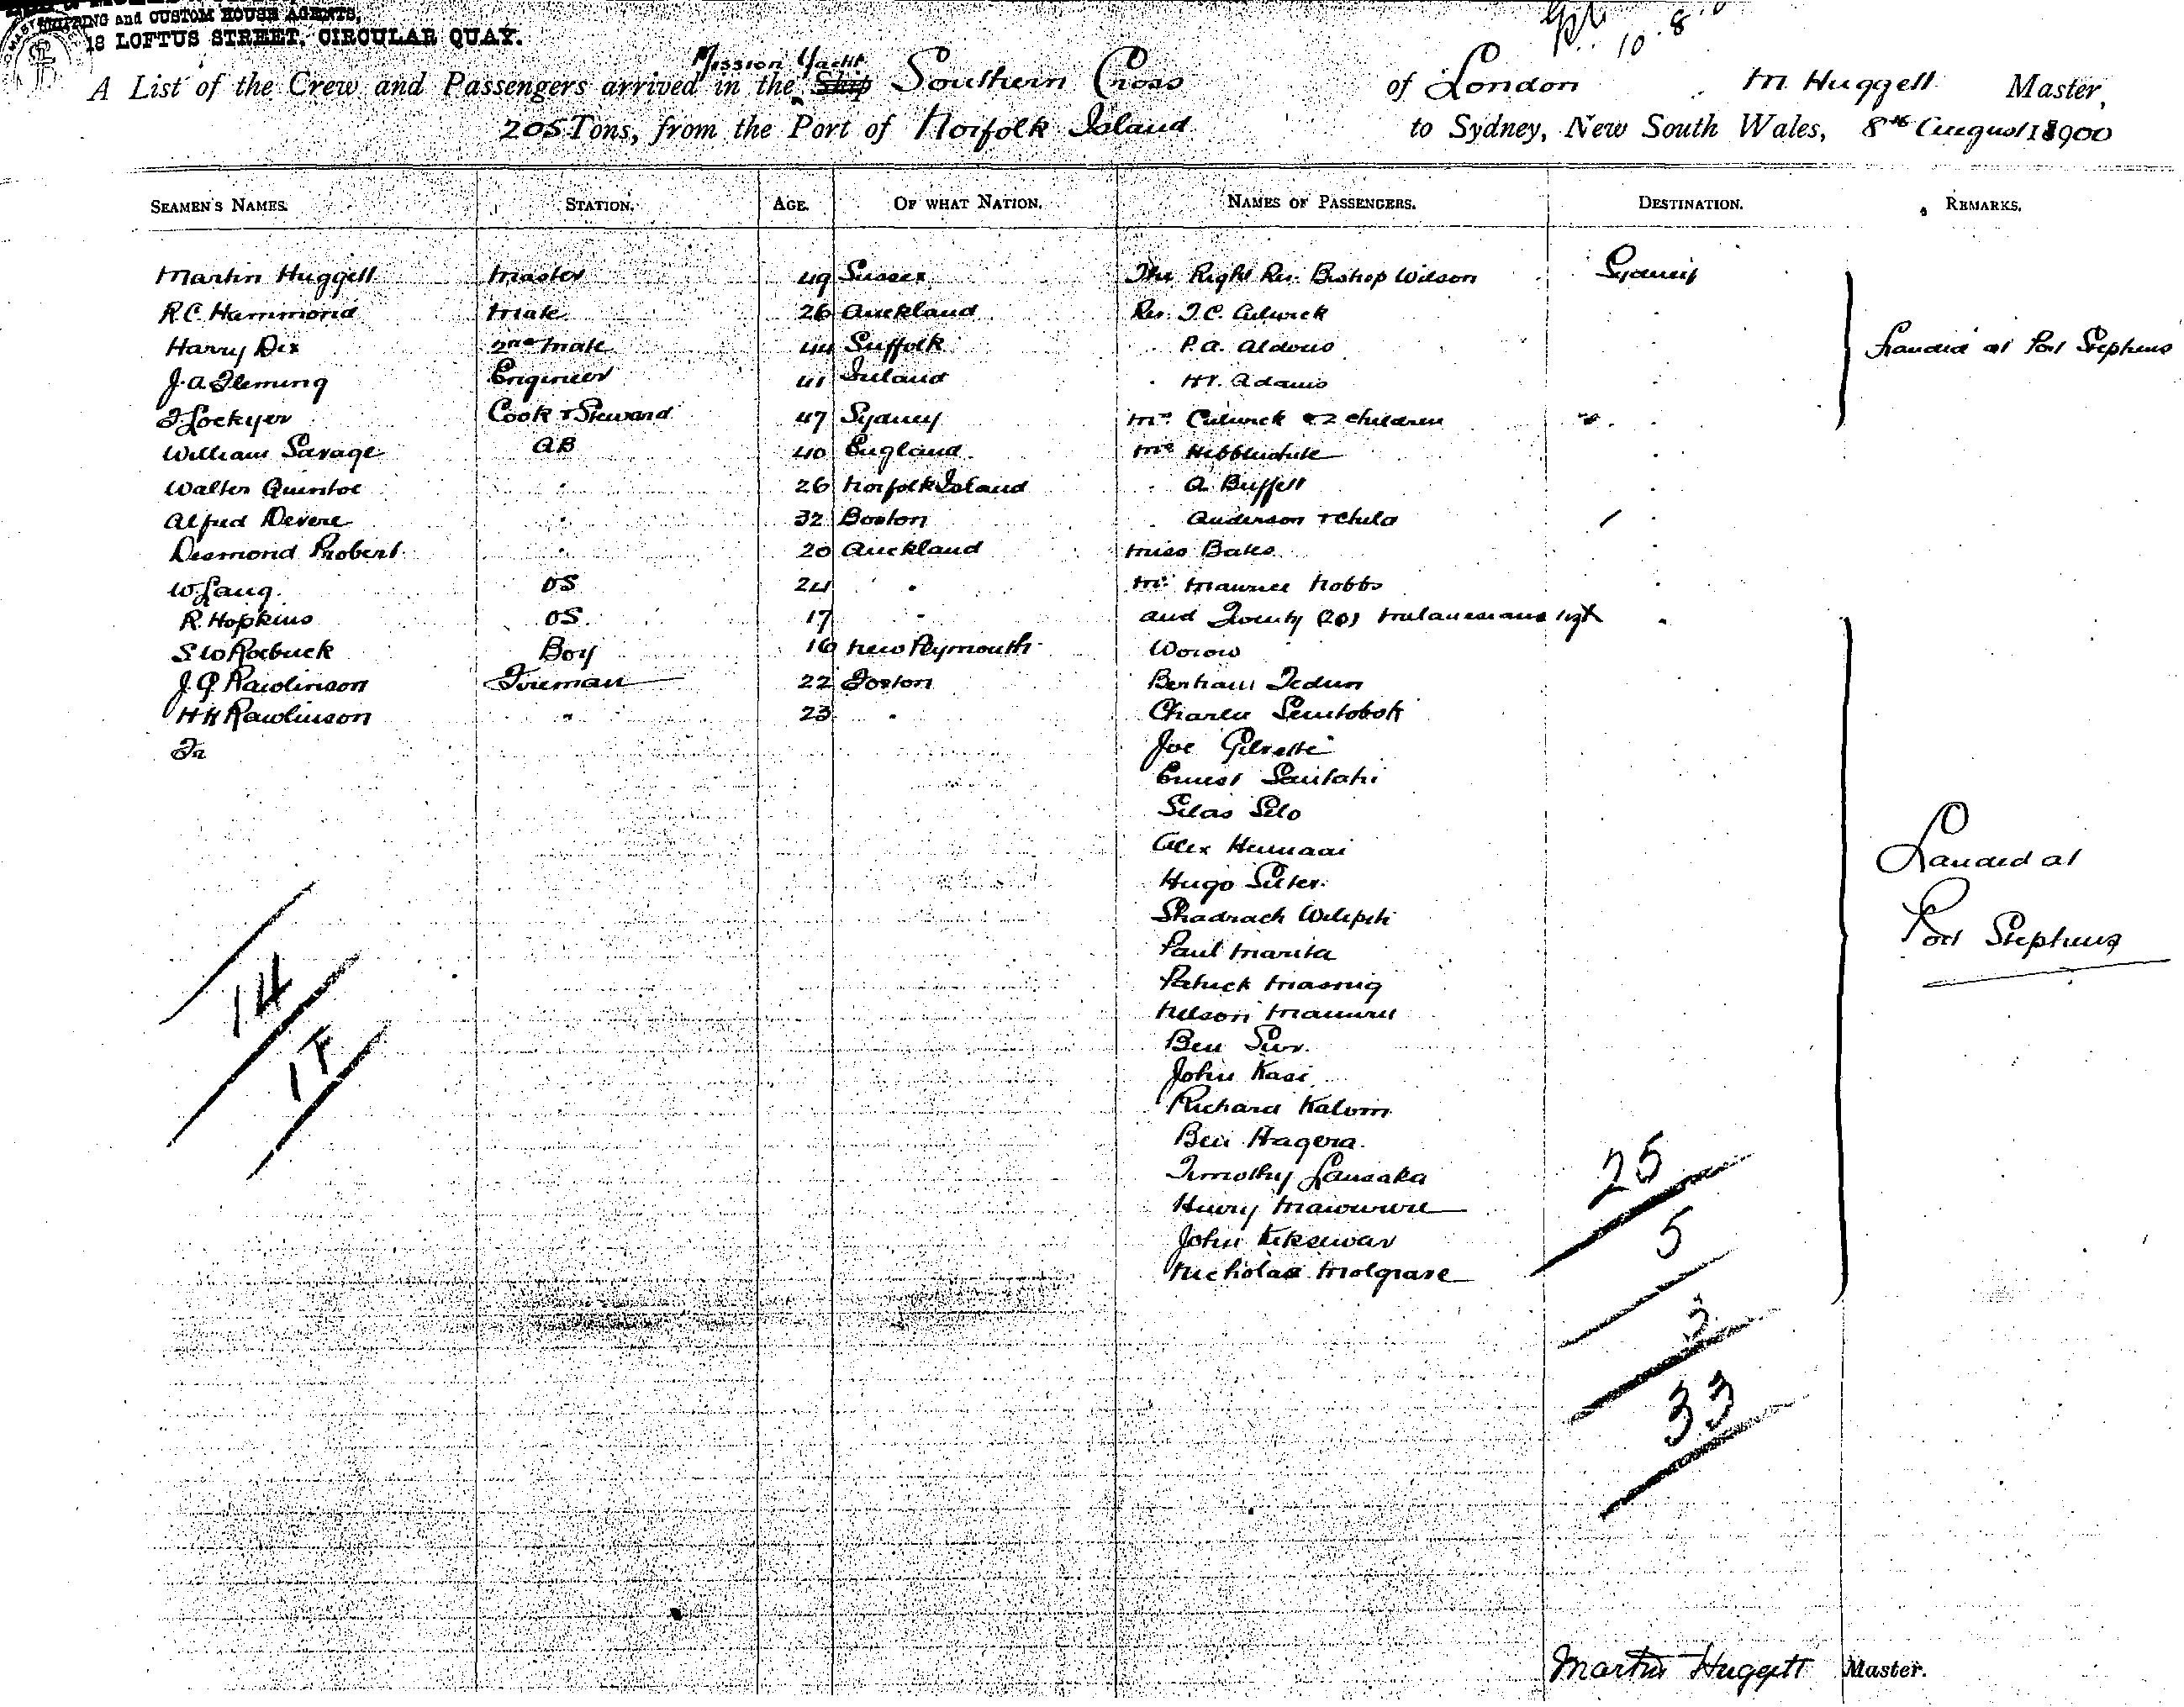 SHIPPING and CUSTOM HOUSE AGENTS,
18 LOFTUS STREET, CIRCULAR QUAY.
10.8.
Mission Yacht
A List of the Crew and Passengers arrived in the Ship Southern Cross of London M. Huggell Master,
205 Tons, from the Port of Norfolk Island to Sydney, New South Wales, 8th August 1900
SEAMEN'S NAMES. STATION. AGE. OF WHAT NATION. NAMES OF PASSENGERS. DESTINATION. REMARKS.
Martin Huggell Master 49 Sussex The Right Rev. Bishop Wilson Sydney
R.C. Hammond Mate 26 Auckland Rev. T.C. Culwick
Harry Dix 2nd Mate 44 Suffolk P.A. Aldous Landed at Port Stephens
J.A. Fleming Engineer 41 Ireland Adams
J Lockyer Cook & Steward 47 Sydney Mrs Culwick & 2 children
William Savage AB 40 England Mrs
Walter Quintal " 26 Norfolk Island " A. Buffett
Alfred Devere " 32 Boston " Anderson & Child
Desmond Probert " 20 Auckland Miss Bates
W. Lang OS 24 " Mr. Maurice Nobbs
R. Hopkins OS 17 " and Twenty (20) Melanesians
S W Roebuck Boy 16 New Plymouth Worow
J.G. Rawlinson Fireman 22 Foxton
H H Rawlinson " 23 " Charlie
Joe
Ernest
Silas Silo
Alex
Hugo
Shadrach
Paul Marita
Patrick Masnig
Nelson
Ben
John Kasi
Richard Kalvin
Ben Hagera
Timothy Lausaka
Henry
John
Nicholas Molgrave
Landed at
Port Stephens
14
17
25
5
3
33
Martin Huggett Master.